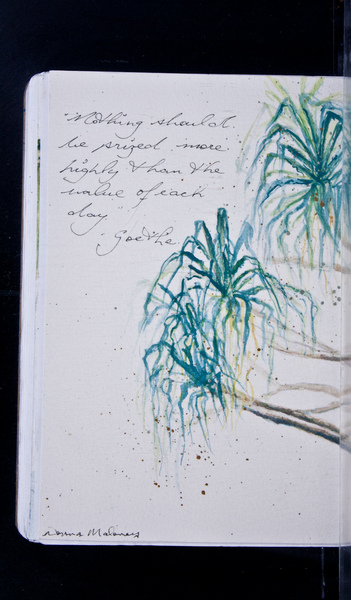 "Nothing should
be prized more
highly than the
value of each
day"
- Goethe
Donna Maloney